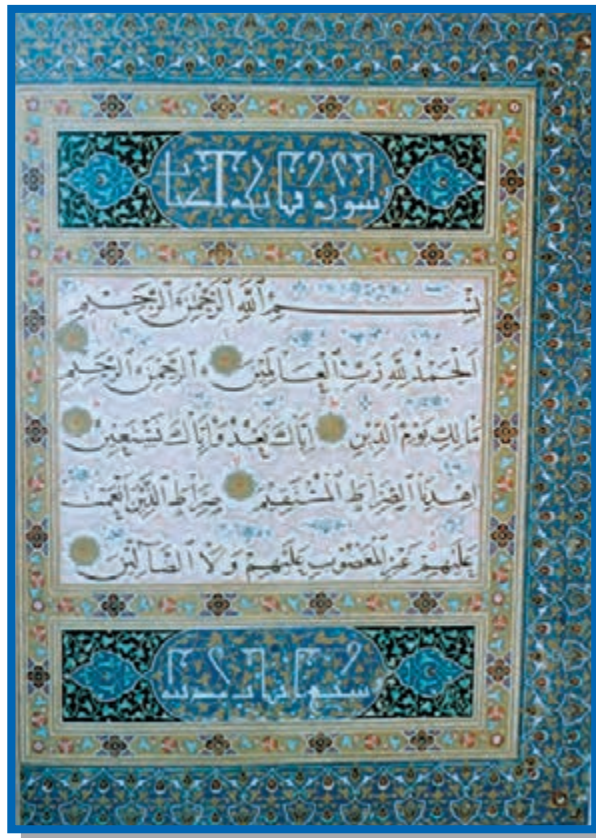 سورة فاتحة الكتاب
بِسْمِ اللَّهِ الرَّحْمٰنِ الرَّحِيمِ
اَلْحَمْدُ لِلَّهِ رَبِّ الْعَالَمِينَ الرَّحْمٰنِ الرَّحِيمِ
مَالِكِ يَوْمِ الدِّينِ اِيَّاكَ نَعْبُدُ وَاِيَّاكَ نَسْتَعِينُ
اِهْدِنَا الصِّرَاطَ الْمُسْتَقِيمَ صِرَاطَ الَّذِينَ اَنْعَمْتَ
عَلَيْهِمْ غَيْرِ الْمَغْضُوبِ عَلَيْهِمْ وَلَا الضَّالِّينَ
سبع آيات